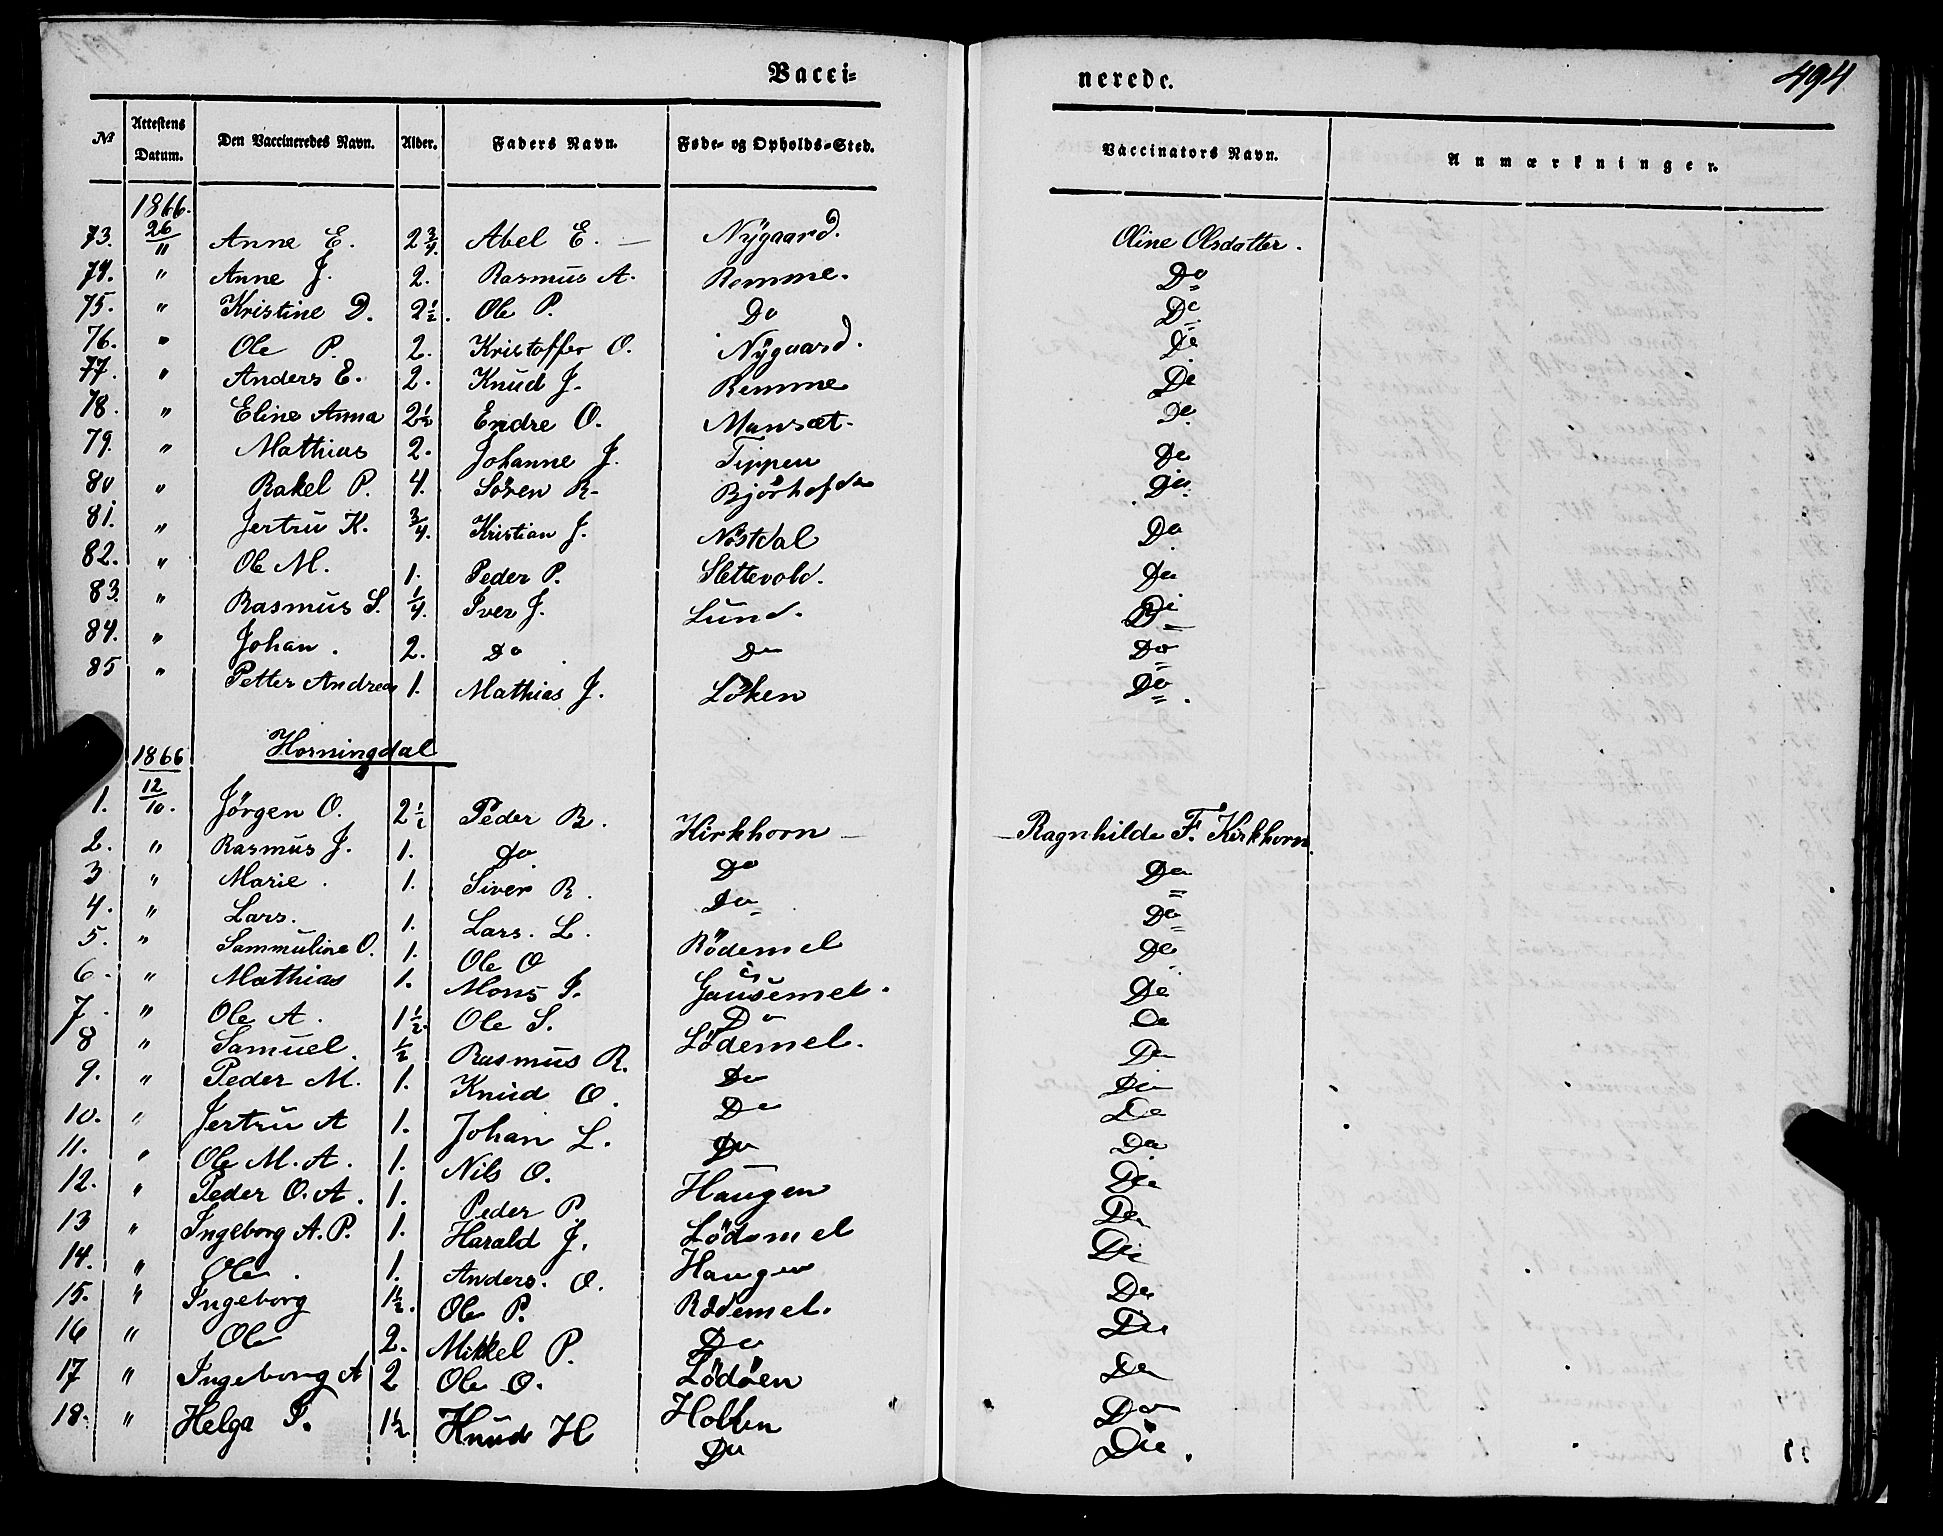 Vacci=
nerede.
494
№ Attestens Datum. Den Vaccineredes Navn. Alder. Faders Navn. Føde- og Opholds-Sted. Vaccinators Navn. Anmærkninger.
1866.
73. 26/11 Anne E. 2 3/4. Abel E. — Nÿgaard. Oline Olsdatter.
74. " Anne J. 2. Rasmus A. Remme. Do
75. " Kristine D. 2 1/2. Ole P. Do Do
76. " Ole P. 2. Kristoffer O. Nÿgaard. Do
77. " Anders E. 2. Knud J. Remme Do
78. " Eline Anna 2 1/2 Endre O. Mansæt. Do
79. " Mathias 2. Johanne J. Tippen Do
80 " Rakel P. 4. Sören R. Do
81. " Jertru K. 3/4. Kristian J. Nöstdal Do
82. " Ole M. 1. Peder P. Slettevold. Do
83. " Rasmus S. 1/4. Iver J. Lund. Do
84. " Johan. 2. Do Do Do
85 " Petter Andreas 1. Mathias J. Löken Do
1866 Horningdal
1. 12/10. Jörgen O. 2 1/2 Peder R. Kirkhorn — Ragnhilde F. Kirkhorn.
2. " Rasmus J. 1. Do Do Do
3 " Marie. 1. Siver R. Do Do
4. " Lars. 1. Lars. L. Rödemel Do
5. " Sammuline O. 1. Ole O Do
6. " Mathias 1. Mons J. Gausemel. Do
7. " Ole A. 1 1/2. Ole S. Do Do
8 " Samuel. 1/2 Rasmus R. Lödemel. Do
9. " Peder M. 1. Knud O. Do Do
10. " Jertru A 1. Johan L. Do Do
11. " Ole M. A. 1. Nils O. Do Do
12. " Peder O. A. 1. Peder P. Haugen Do
13 " Ingeborg A. P. 1. Harald J. Lödemel Do
14. " Ole. 1. Anders. O. Haugen Do
15. " Ingeborg 1 1/2. Ole P. Rödemel. Do
16 " Ole 2. Mikkel P. Do Do
17 " Ingeborg A 2 Ole O. Lödöen Do
18. " Helga P. 1 1/2 Knud H Do
Do Do.